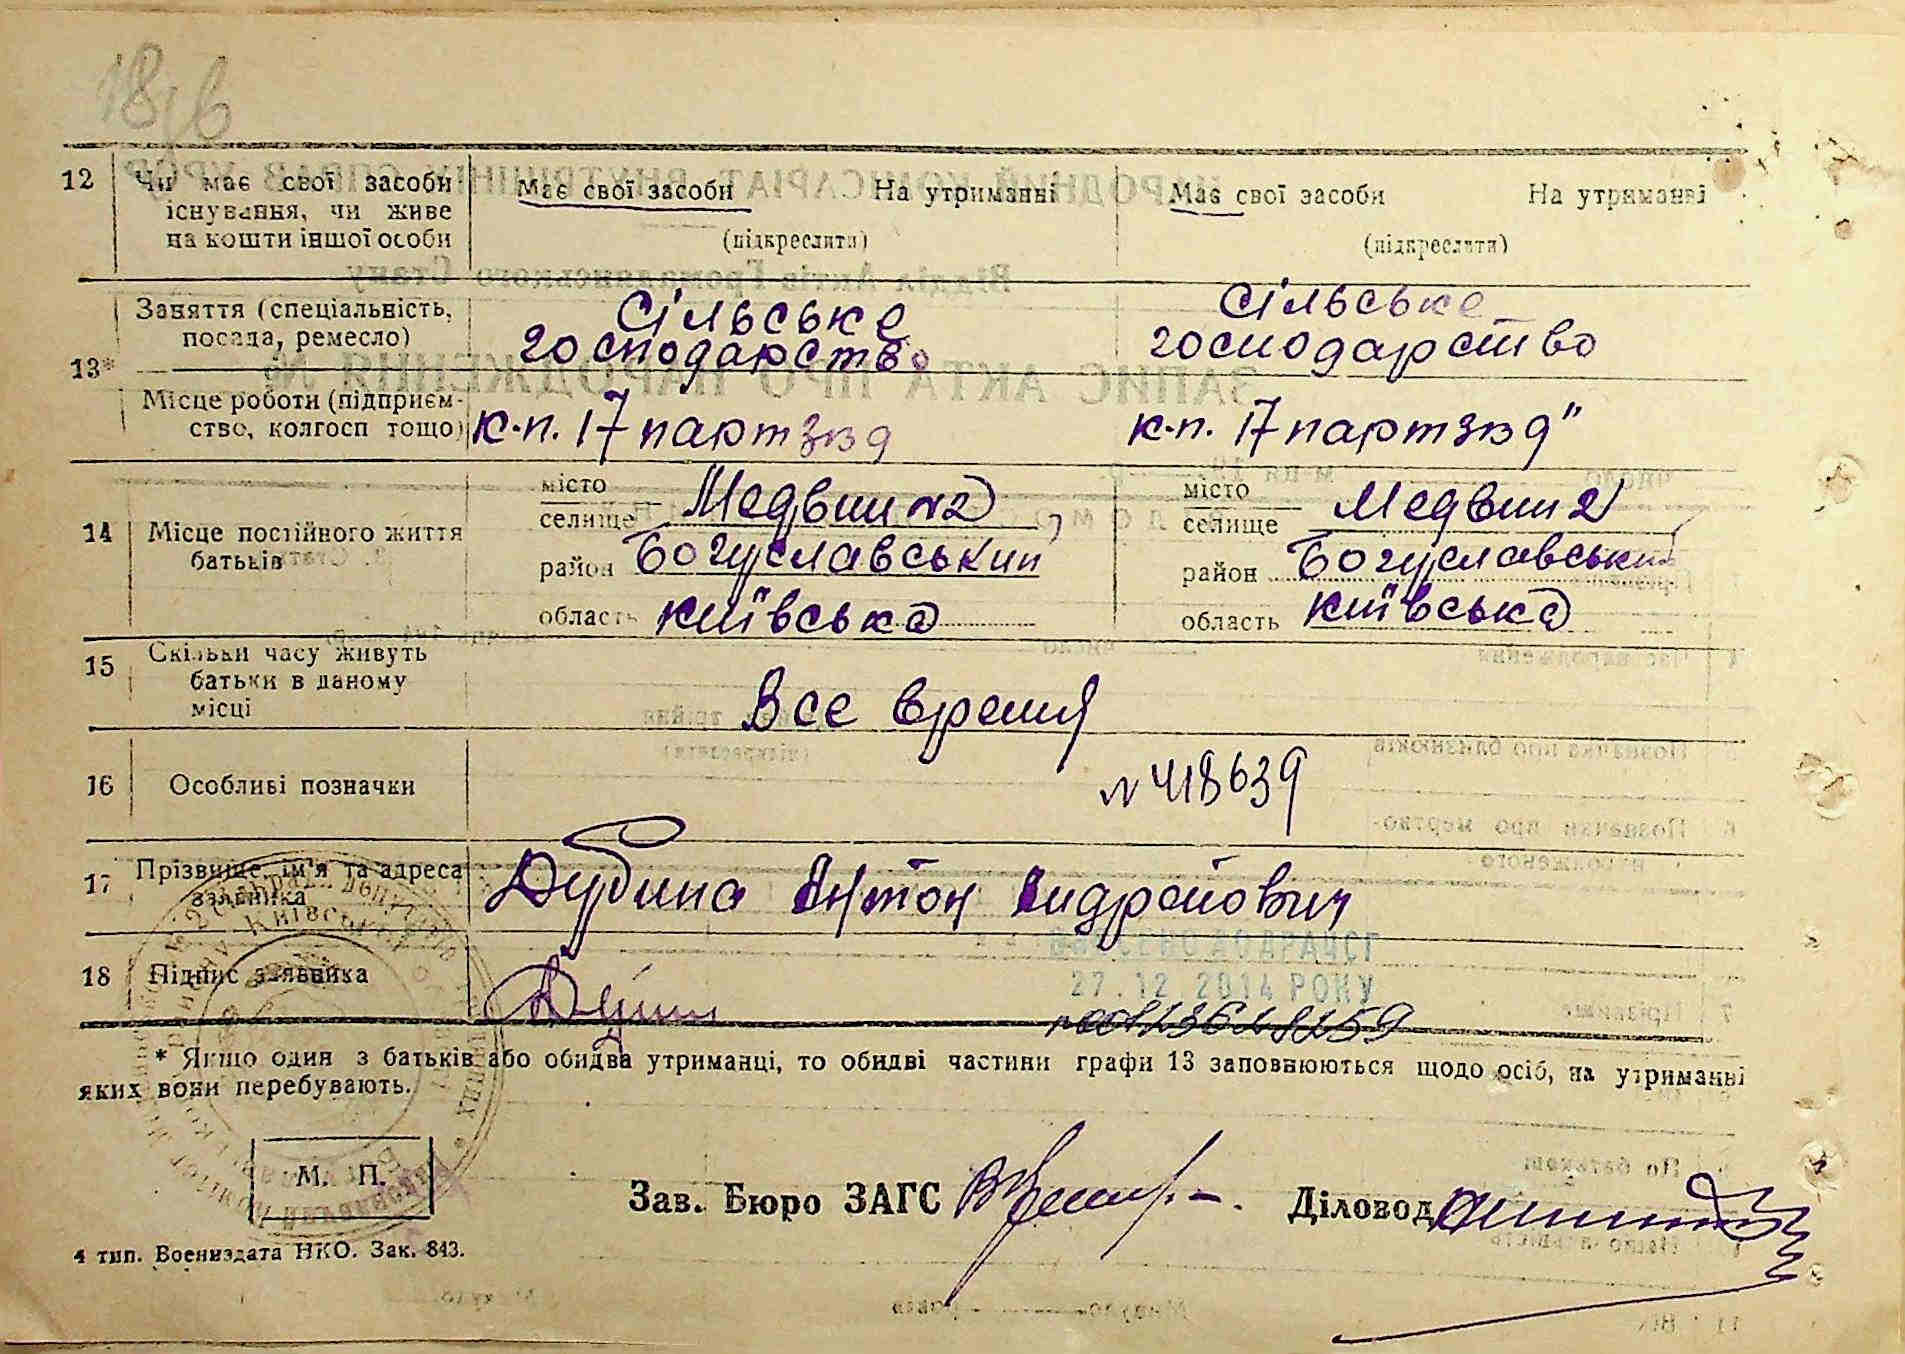 12 Чи має свої засоби існування, чи живе на кошти іншої особи
Має свої засоби На утриманні Має свої засоби На утриманні
(підкреслити) (підкреслити)
13* Заняття (спеціальність, посада, ремесло)
сільське господарство
сільське господарство
Місце роботи (підприємство, колгосп тощо)
к.п. 17 партзїзд к.п. 17 партзїзд"
14 Місце постійного життя батьків
місто
селище Медвин №2,
район Богуславський
область київська
місто
селище Медвин 2
район Богуславський
область київська
15 Скільки часу живуть батьки в даному місці
Все время
16 Особливі позначки
№ 418639
17 Прізвище, ім'я та адреса заявника
Дубина Антон Андрійович
ВНЕСЕНО ДО ДРАЦСГ
27.12.2014 РОКУ
18 Підпис заявника
* Якщо один з батьків або обидва утриманці, то обидві частини графи 13 заповнюються щодо осіб, на утриманні
яких вони перебувають.
М. П.
Зав. Бюро ЗАГС Діловод
4 тип. Воениздата НКО. Зак. 843.